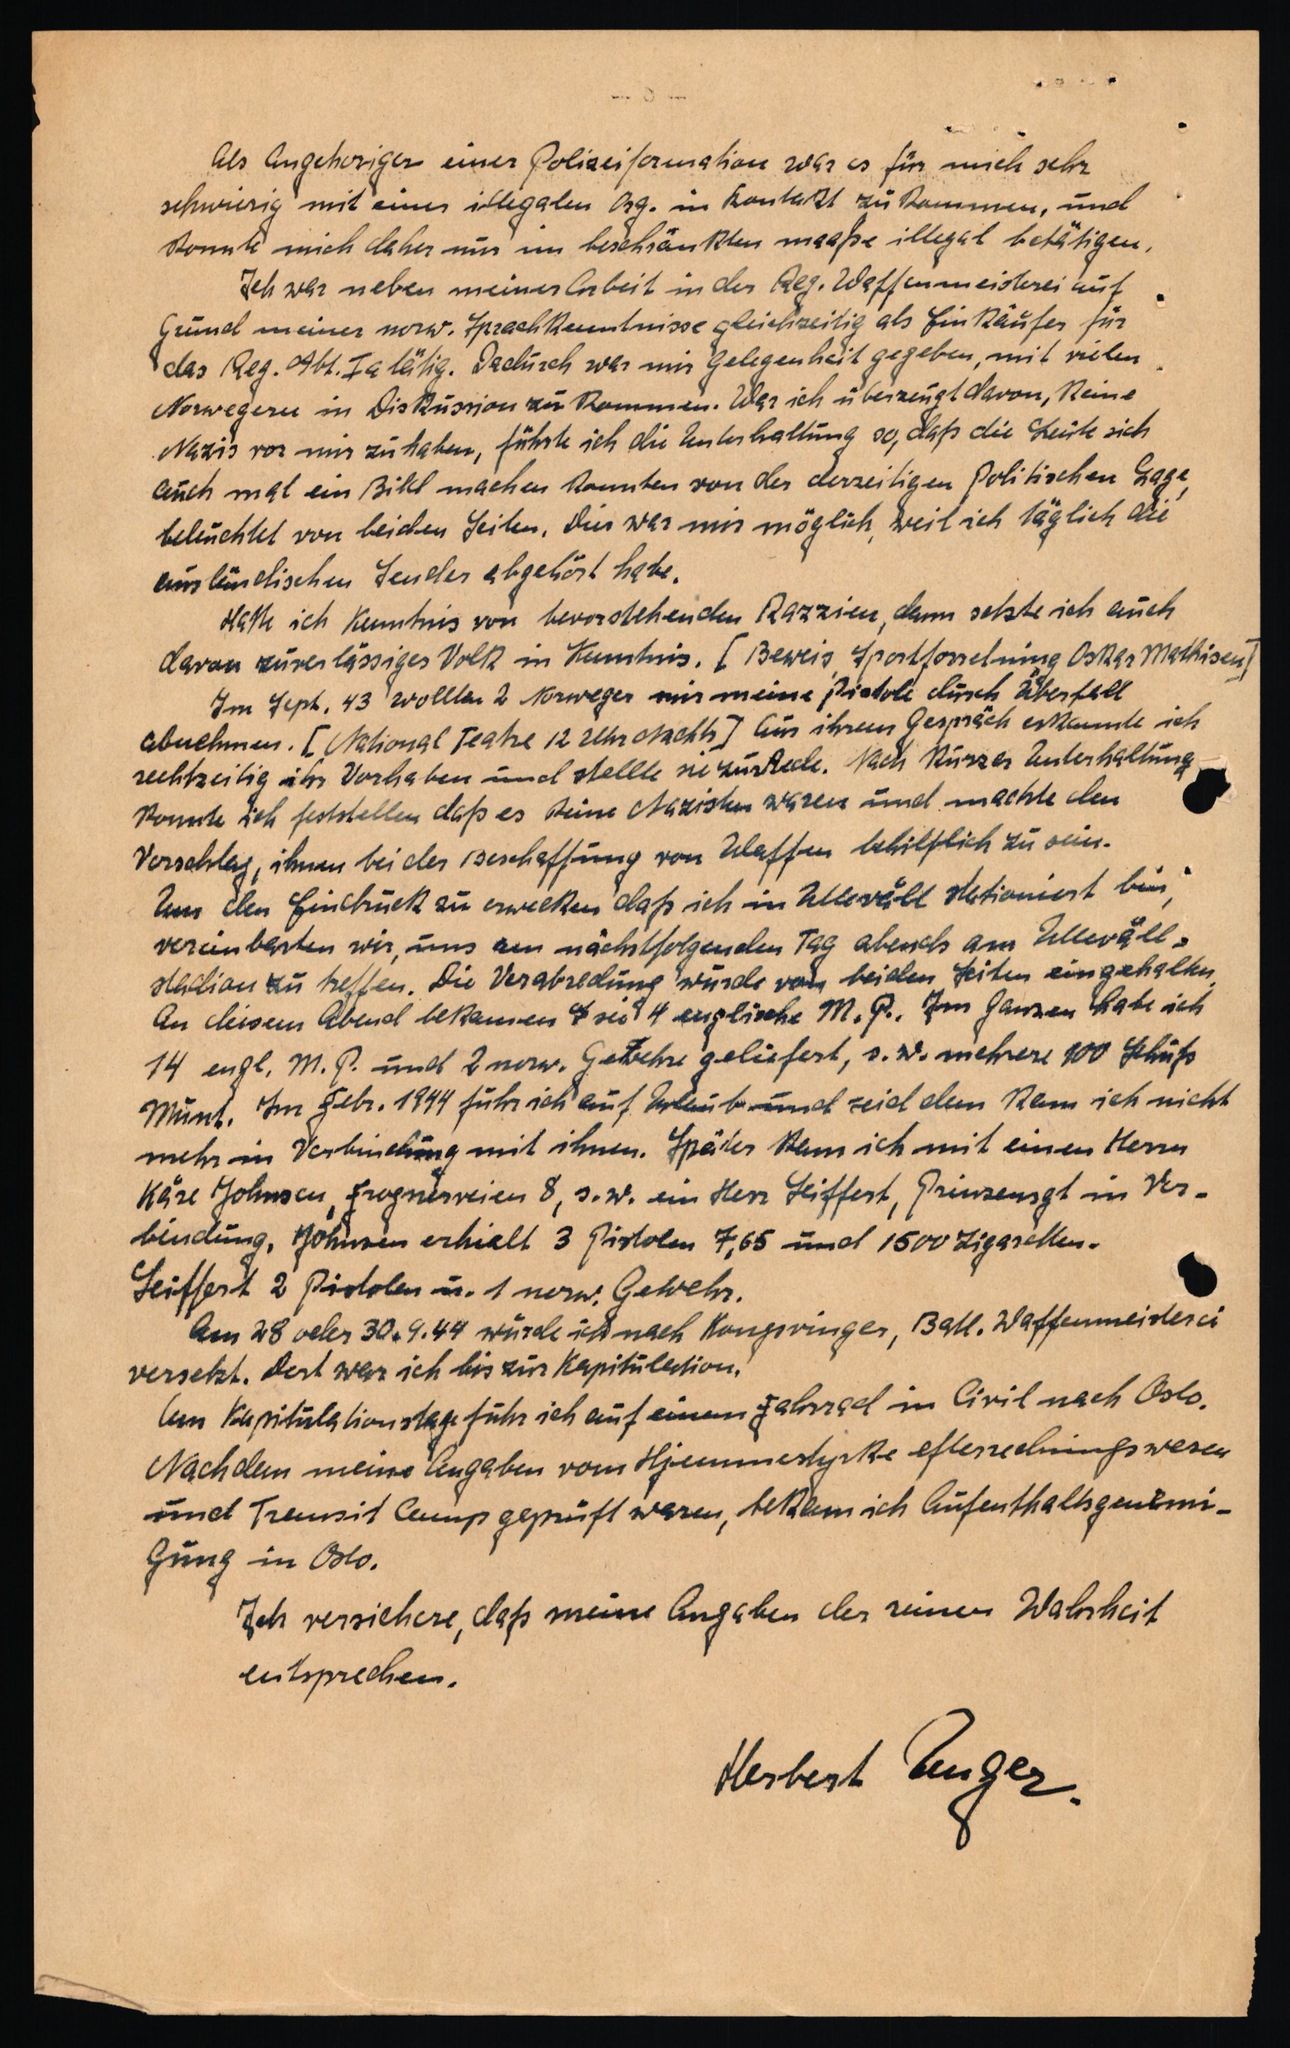 Als Angehöriger einer Polizeiformation war es für mich sehr
schwierig mit einer illegalen Org. in Kontakt zu kommen, und
konnte mich daher nur im beschränkten maaße illegal betätigen.
Ich war neben meiner Arbeit in der Reg. Waffenmeisterei auf
Grund meiner norw. Sprachkenntnisse gleichzeitig als Einkäufer für
das Reg. Abt. Ia tätig. Dadurch war mir Gelegenheit gegeben, mit vielen
Norwegern in Diskussion zu kommen. War ich überzeugt davon, keine
Nazis vor mir zu haben, führte ich die Unterhaltung so, daß die Leute sich
auch mal ein Bild machen konnten von der derzeitigen Politischen Lage,
beleuchtet von beiden Seiten. Dies war mir möglich, weil ich täglich die
ausländischen Sender abgehört habe.
Hatte ich Kenntnis von bevorstehenden Razzien, dann setzte ich auch
davon zuverlässiges Volk in Kenntnis. [Beweis, Sportforretning Oskar Mathisen]
Im Sept. 43 wollten 2 Norweger mir meine Pistole durch Überfall
abnehmen. [National Teatre 12 Uhr Nachts] Aus ihrem Gespräch erkannte ich
rechtzeitig ihr Vorhaben und stellte sie zur Rede. Nach kurzer Unterhaltung
konnte ich feststellen daß es keine Nazisten waren und machte den
Vorschlag, ihnen bei der Beschaffung von Waffen behilflich zu sein.
Um den Eindruck zu erwecken daß ich in Ullevåll stationiert bin,
vereinbarten wir, uns am nächstfolgenden Tag abends am Ullevåll-
stadion zu treffen. Die Verabredung wurde von beiden Seiten eingehalten.
An diesem Abend bekamen sie 4 englische M.P. Im Ganzen habe ich
14 engl. M.P. und 2 norw. Gewehre geliefert, s.w. mehrere 100 Schuß
Munt. Im Febr. 1944 fuhr ich auf Urlaub und seid dem kam ich nicht
mehr in Verbindung mit ihnen. Später kam ich mit einen Herrn
Kåre Johnsen, Frognerveien 8, s.w. ein Herr Seiffert, Prinzensgt in Ver-
bindung. Johnsen erhielt 3 Pistolen 7,65 und 1500 Zigaretten.
Seiffert 2 Pistolen u. 1 norw. Gewehr.
Am 28 oder 30.9.44 wurde ich nach Kongsvinger, Batl. Waffenmeisterei
versetzt. Dort war ich bis zur Kapitulation.
Am Kapitulationstage fuhr ich auf einem Fahrrad in Civil nach Oslo.
Nachdem meine Angaben vom Hjemmestyrke efterretningswesen
und Transit Camp geprüft waren, bekam ich Aufenthaltsgenemi-
gung in Oslo.
Ich versichere, daß meine Angaben der reinen Wahrheit
entsprechen.
Herbert Unger.